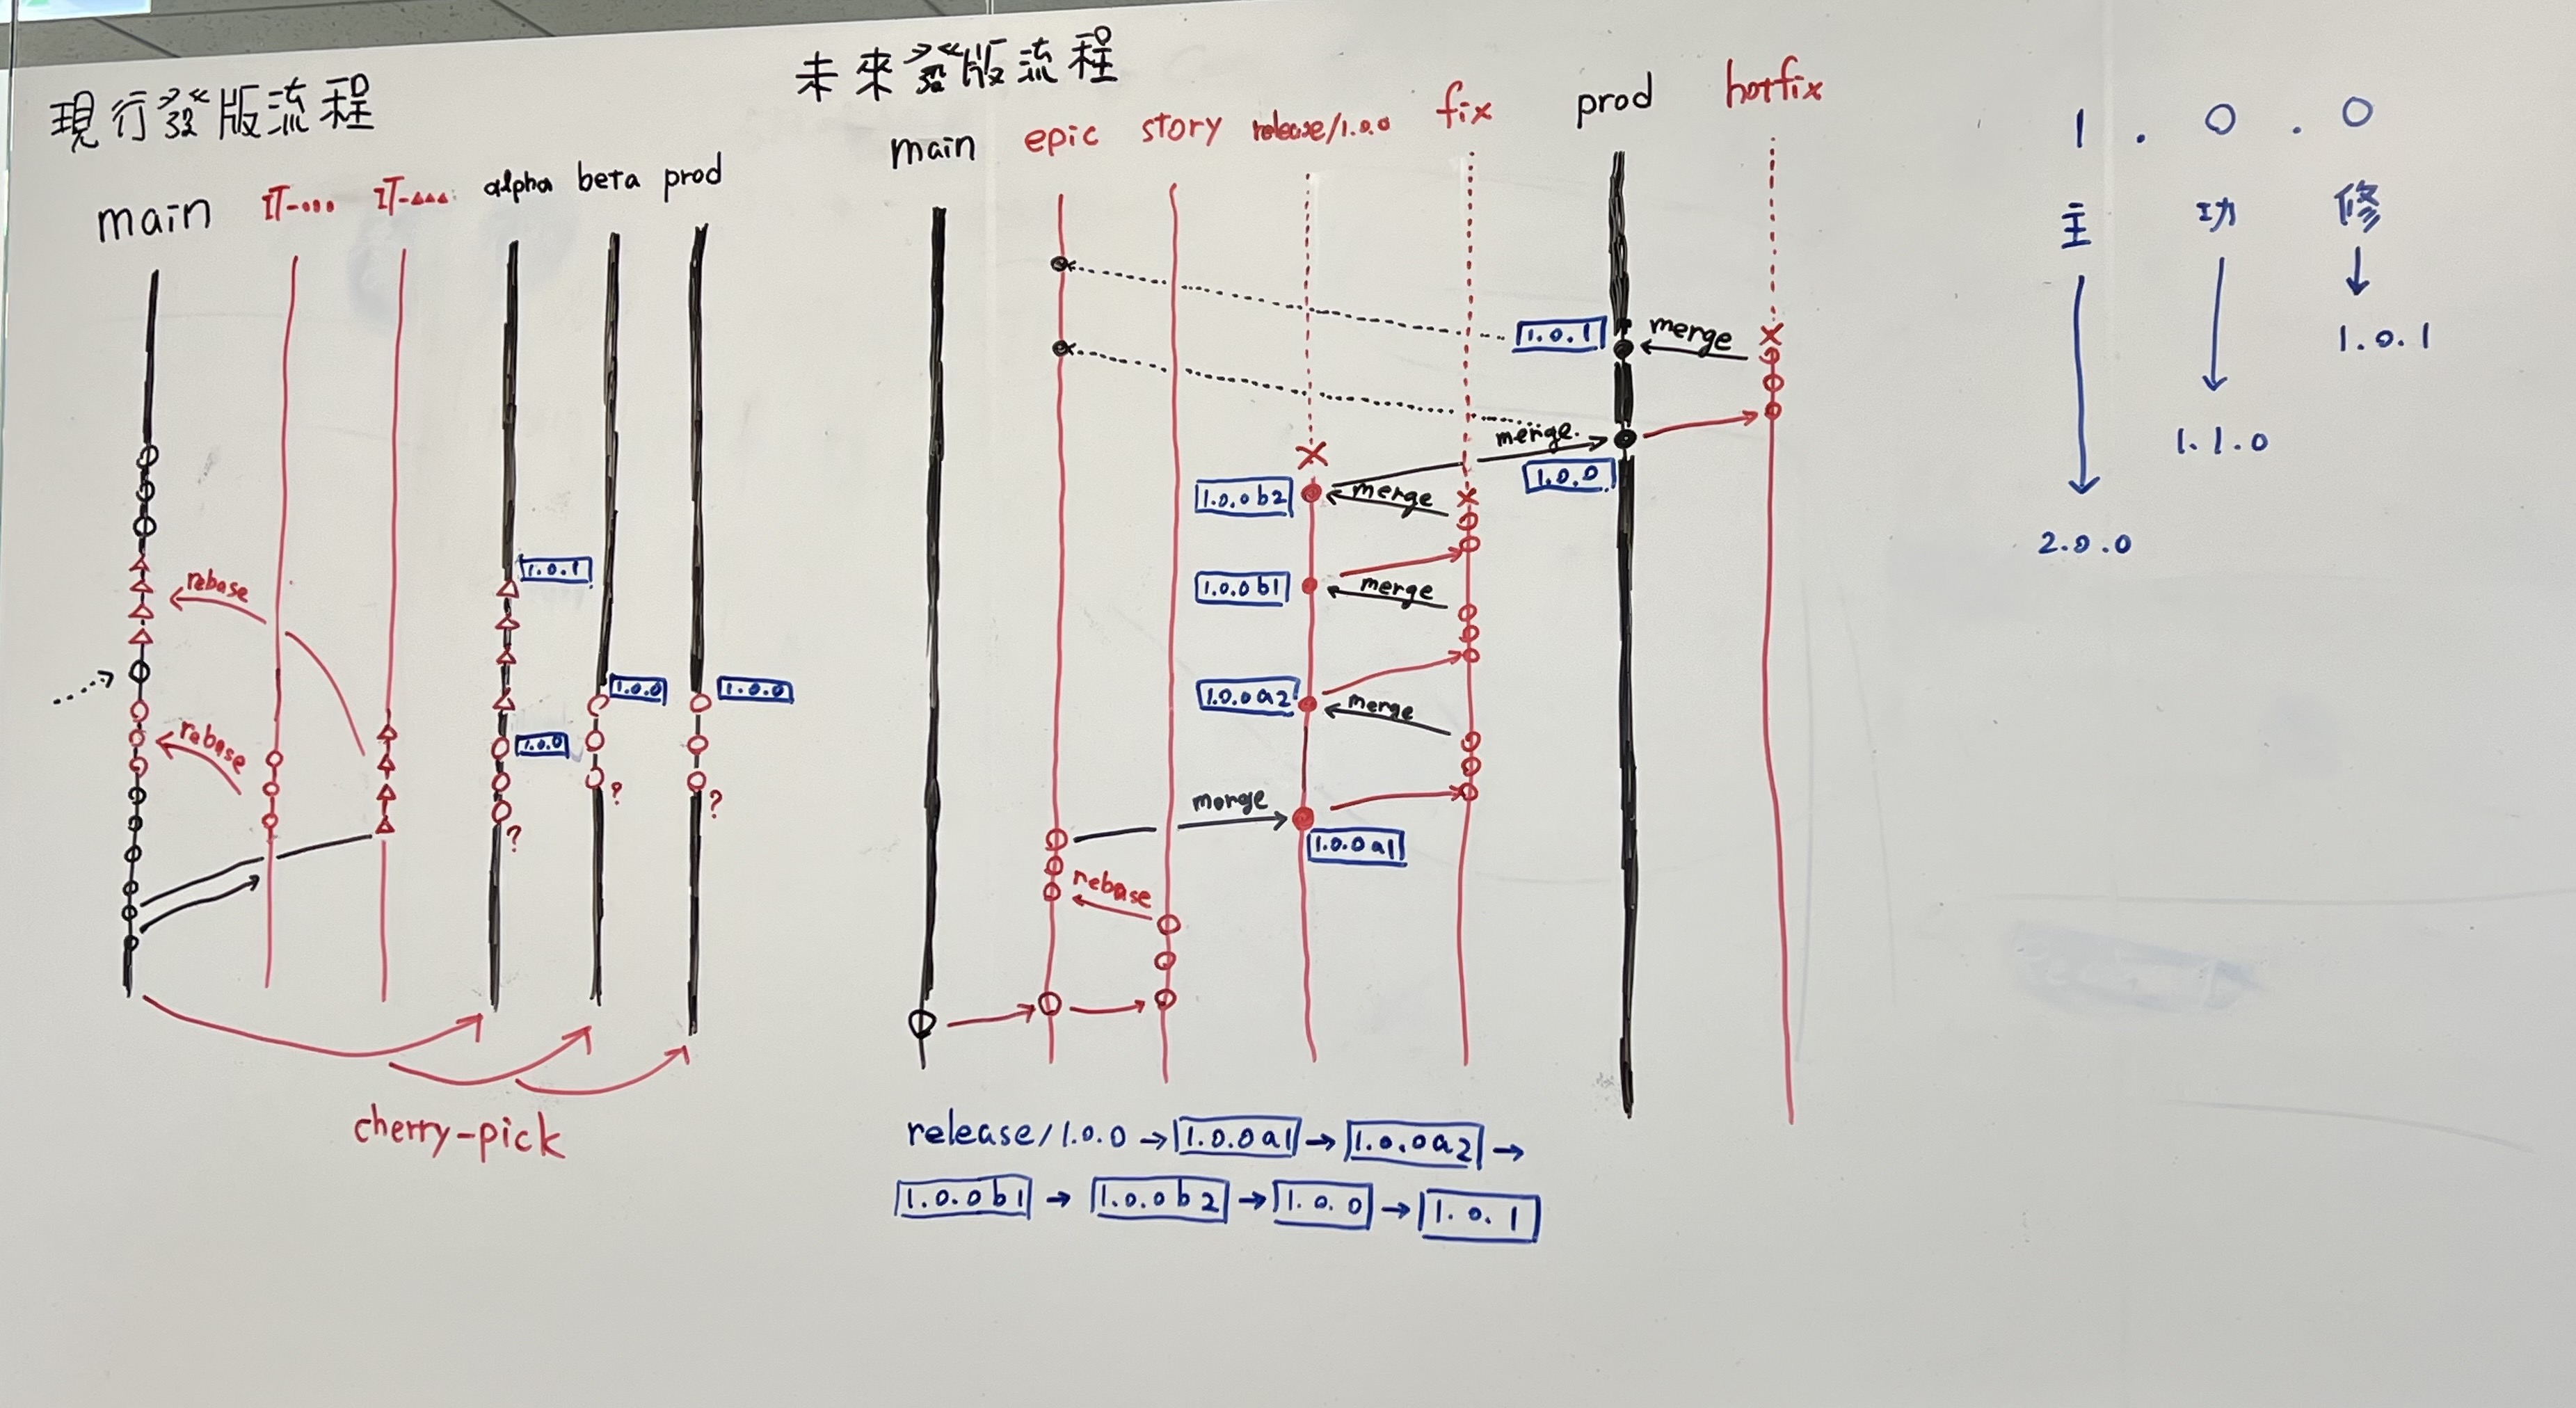 現行發版流程
main IT-○○○ IT-△△△ alpha beta prod
rebase
rebase
1.0.1
1.0.0
1.0.0
1.0.0
?
?
?
cherry-pick
未來發版流程
main epic story release/1.0.0 fix prod hotfix
1.0.1
merge
merge
1.0.0
1.0.0b2
merge
1.0.0b1
merge
1.0.0a2
merge
merge
1.0.0a1
rebase
release/1.0.0 → 1.0.0a1 → 1.0.0a2 →
1.0.0b1 → 1.0.0b2 → 1.0.0 → 1.0.1
1 . 0 . 0
主 功 修
1.0.1
1.1.0
2.0.0